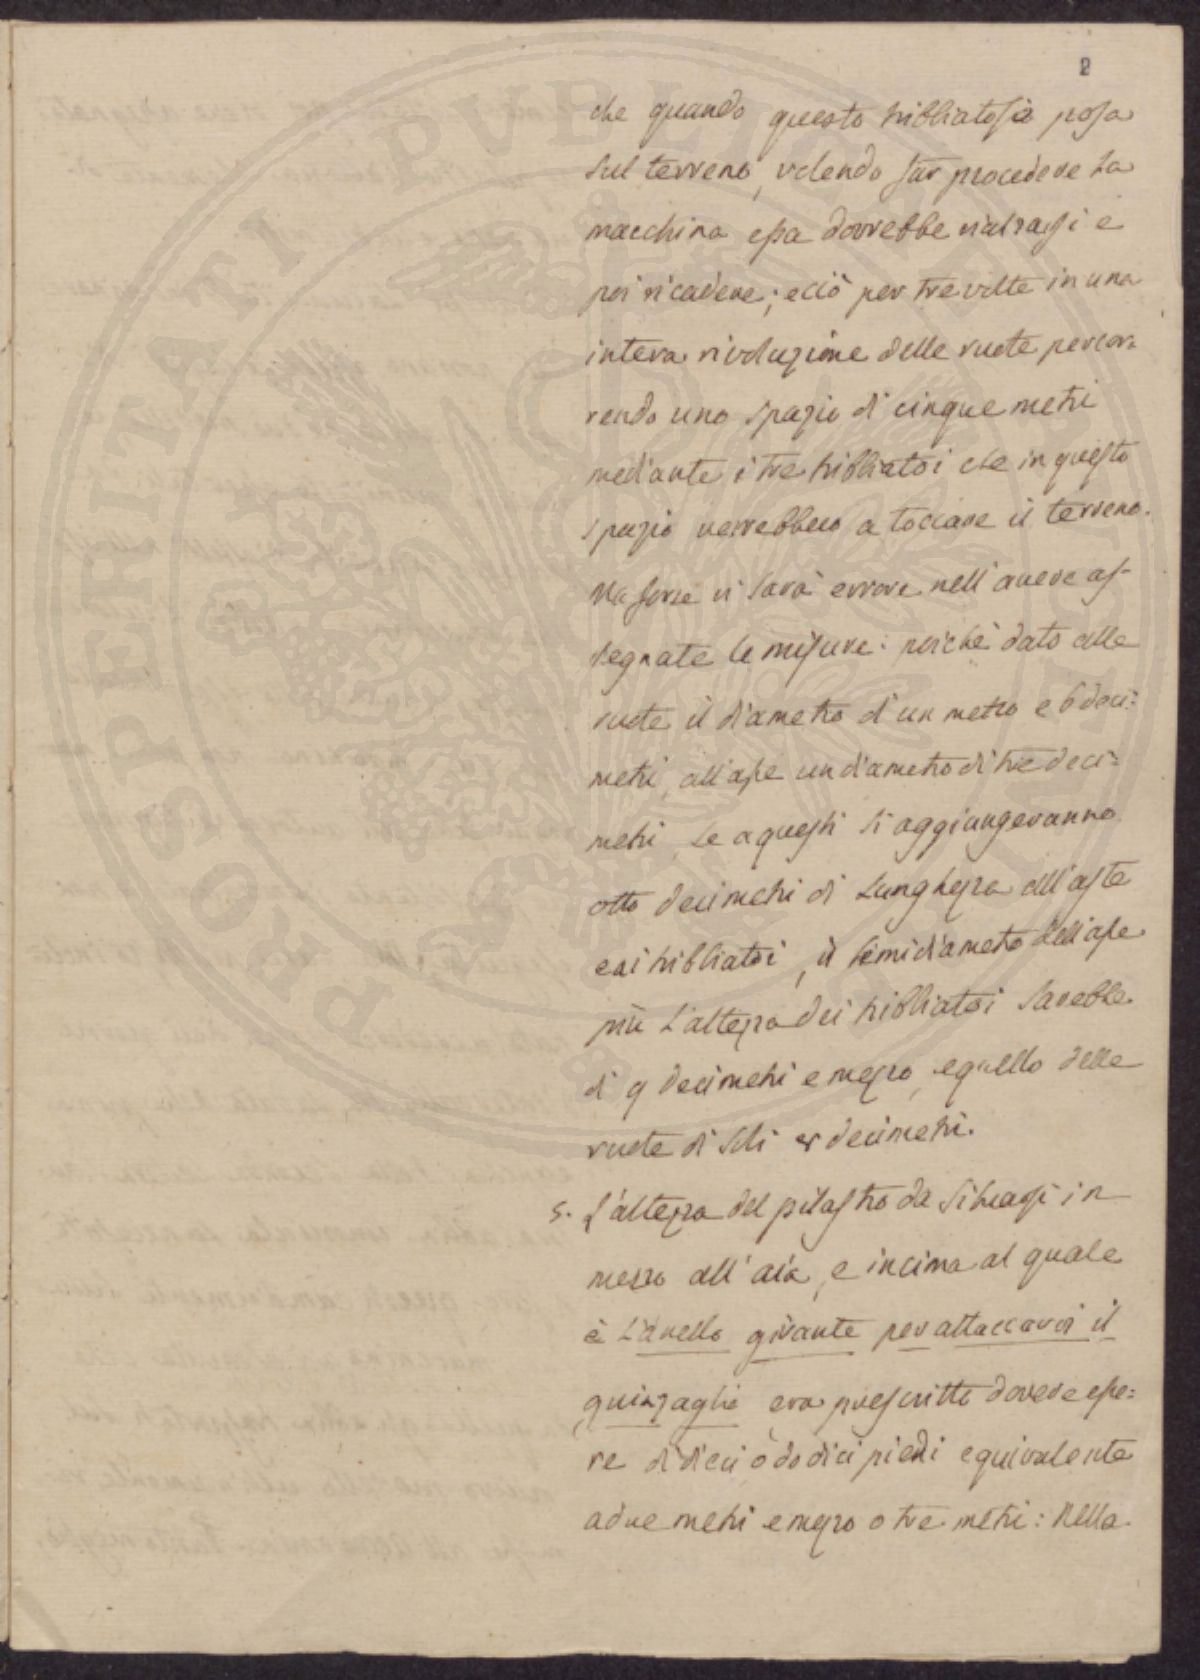 2
che quando questo tribbiatojo posa
sul terreno, volendo far procedere la
macchina essa dovrebbe rialzassi e
poi ricadere; e ciò per tre volte in una
intera rivoluzione delle ruote percor=
rendo uno spazio di cinque metri
mediante i tre tribbiatoi che in questo
spazio verrebbero a toccare il terreno.
Ma forse vi sarà errore nell'avere as-
segnate le misure: poichè dato alle
ruote il diametro d'un metro e 6 deci=
metri, all'asse un diametro di tre deci=
metri, se a questi si aggiungeranno
otto decimetri di lunghezza all'aste
e ai tribbiatoi, il semidiametro dell'asse
più l'altezza dei tribbiatoi sarebbe
di 9 decimetri e mezzo, e quello delle
ruote di soli 8 decimetri.
5. L'altezza del pilastro da situassi in
mezzo all'aia, e in cima al quale
è l'anello girante per attaccarvi il
guinzaglio era prescritto dovere esse=
re di dieci o dodici piedi equivalente
a due metri e mezzo o tre metri: nella
PROSPERITATI PUBLICAE AUGENDAE